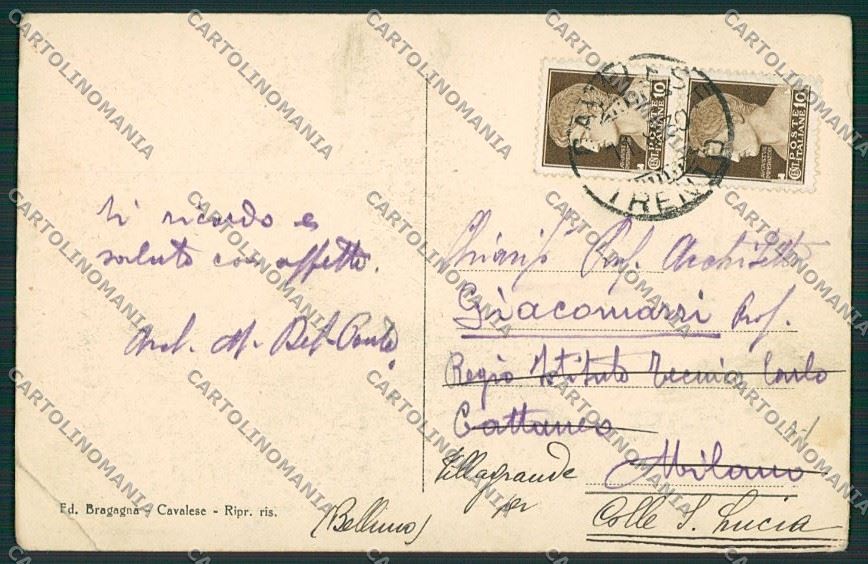 POSTE ITALIANE 10
POSTE ITALIANE 10
CAVALESE
TRENTO
Ti ricordo e
saluto con affetto.
Arch. M. Del-Ponte
Prof. Architetto
Giacomazzi Prof.
Regio Istituto Tecnico Carlo
Cattaneo
Milano
Villagrande
per
Colle S. Lucia
(Belluno)
Ed. Bragagna - Cavalese - Ripr. ris.
CARTOLINOMANIA